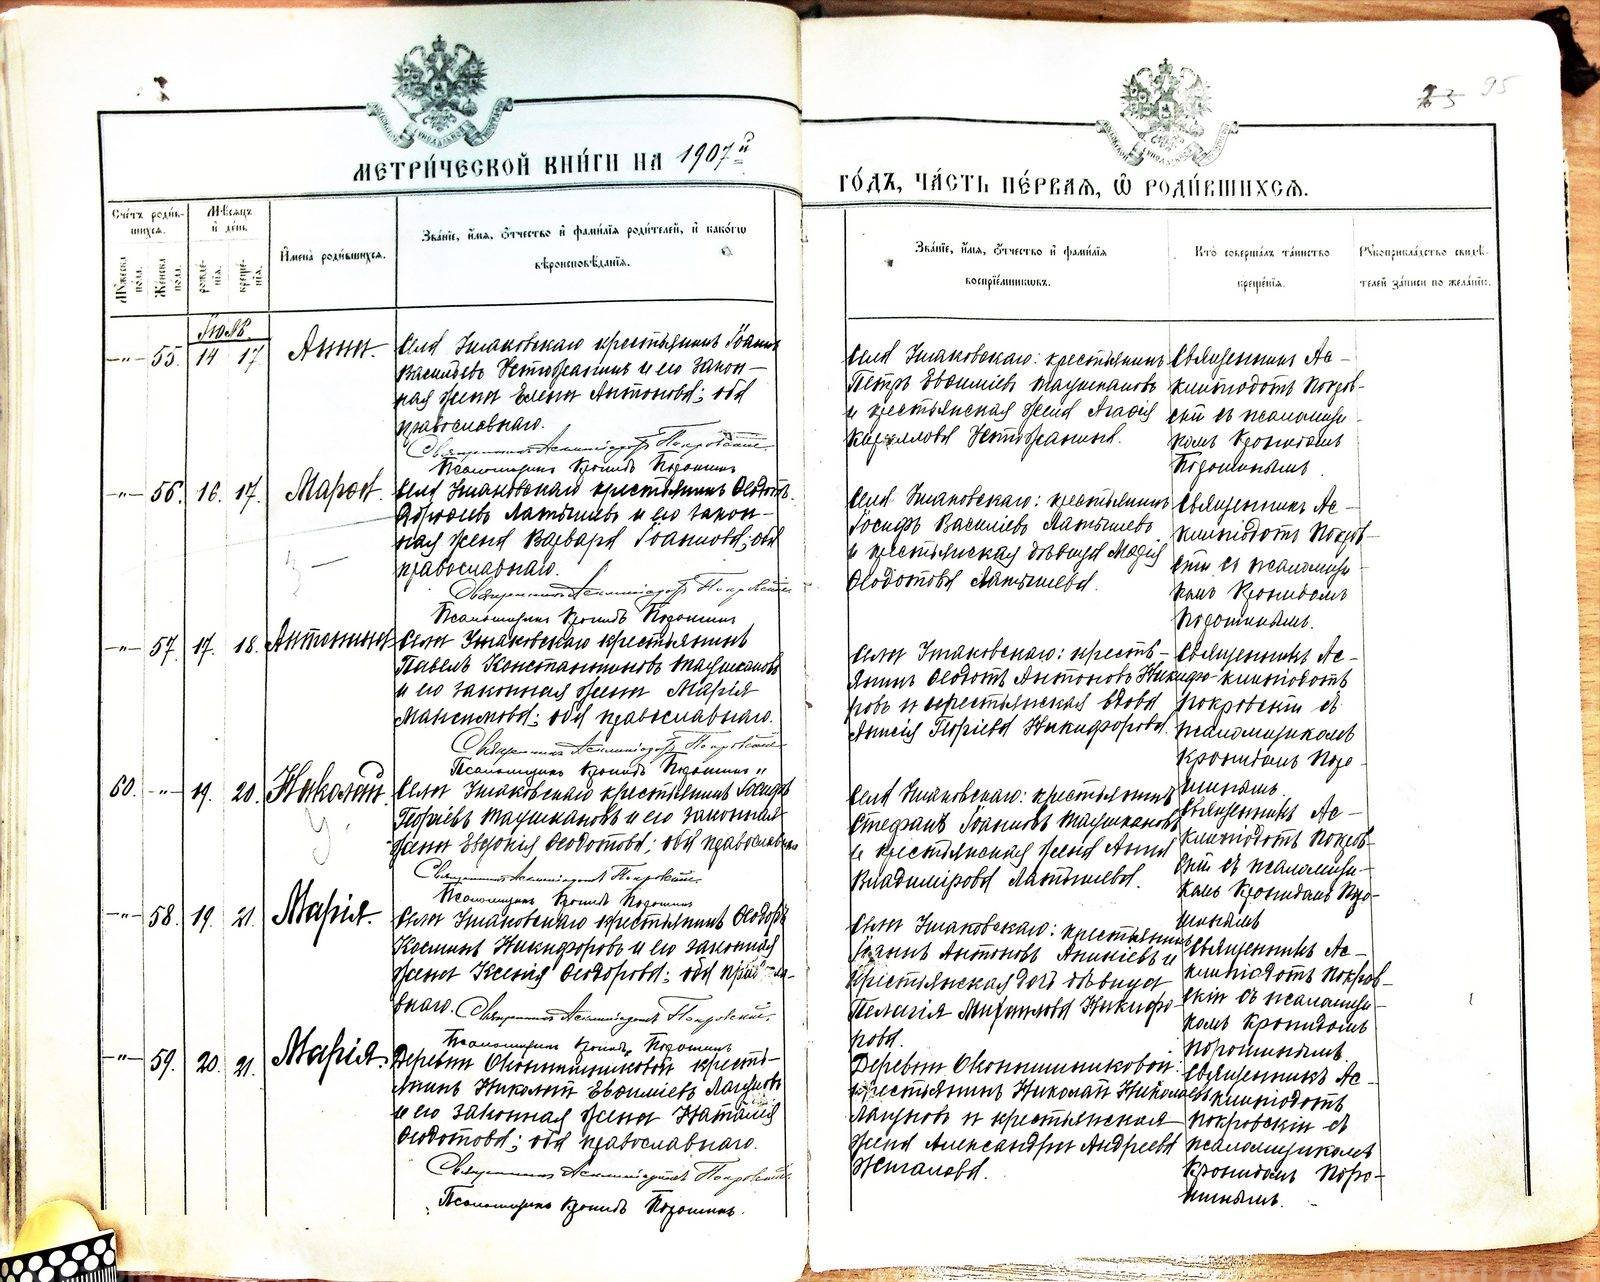 23 95
МЕТРИ́ЧЕСКОЙ КНИ́ГИ НА 1907й
ГО́ДЪ, ЧА́СТЬ ПЕ́РВАЯ, Ѽ РОДИ́ВШИХСЯ.
Сче́тъ роди́в-
шихся.
Му́жеска пола.
Же́нска пола.
Мѣ́сяцъ
и҆ де́нь
рожде-
нїя.
креще-
нїя.
И҆мена̀ роди́вшихся.
Зва́нїе, и҆́мя, ѻ҆́тчество и҆ фами́лїя роди́телей, и҆ како́гѡ
вѣроисповѣ́данїя.
Зва́нїе, и҆́мя, ѻ҆́тчество и҆ фами́лїя
воспрїе́мникѡвъ.
Кто̀ соверша́лъ та́инство
креще́нїя.
Рꙋкоприкла́дство свидѣ́-
телей за́писи по жела́нїю.
Іюль.
-"- 55. 14 17 Анна.
Села Ушаковскаго крестьянинъ Іоаннъ
Васильевъ и его закон-
ная жена Елена Антонова; оба
православнаго.
Священникъ Асклипіодотъ Покровскій
Псаломщикъ Кронидъ Порошинъ
Села Ушаковскаго: крестьянинъ
Петръ Евѳиміевъ Таушкановъ
и крестьянская жена Агаѳія
Кириллова
Священникъ Ас-
клипіодотъ Покров-
скій съ псаломщи-
комъ Кронидомъ
Порошинымъ.
-"- 56. 16. 17. Марѳа.
Села Ушаковскаго крестьянинъ Ѳеодотъ
Латышевъ и его закон-
ная жена Варвара Іоаннова; оба
православнаго.
Священникъ Асклипіодотъ Покровскій
Псаломщикъ Кронидъ Порошинъ
Села Ушаковскаго: крестьянинъ
Іосифъ Василіевъ Латышевъ
и крестьянская дѣвица Марія
Ѳеодотова Латышева.
Священникъ Ас-
клипіодотъ Покров-
скій съ псаломщи-
комъ Кронидомъ
Порошинымъ.
-"- 57. 17. 18. Антонина
Села Ушаковскаго крестьянинъ
Павелъ Константиновъ Таушкановъ
и его законная жена Марія
Максимова; оба православнаго.
Священникъ Асклипіодотъ Покровскій
Псаломщикъ Кронидъ Порошинъ
Села Ушаковскаго: кресть-
янинъ Ѳеодотъ Антоновъ Никифо-
ровъ и крестьянская вдова
Анисія Никифорова.
Священникъ Ас-
клипіодотъ
Покровскій съ
псаломщикомъ
Кронидомъ Поро-
шинымъ.
60. -"- 19. 20. Николай.
Села Ушаковскаго крестьянинъ Іосифъ
Георгіевъ Таушкановъ и его законная
жена Евдокія Ѳеодотова; оба православнаго
Священникъ Асклипіодотъ Покровскій
Псаломщикъ Кронидъ Порошинъ
Села Ушаковскаго: крестьянинъ
Стефанъ Іоанновъ Таушкановъ
и крестьянская жена Анна
Владимірова Латышева.
Священникъ Ас-
клипіодотъ Покров-
скій съ псаломщи-
комъ Кронидомъ Поро-
шинымъ
-"- 58. 19. 21. Марія.
Села Ушаковскаго крестьянинъ Ѳеодоръ
Косминъ Никифоровъ и его законная
жена Ксенія Ѳеодорова; оба
внаго. Священникъ Асклипіодотъ Покровскій.
Псаломщикъ Кронидъ Порошинъ
Села Ушаковскаго: крестьянинъ
Іоаннъ Антоновъ Аникіевъ и
крестьянская дочь дѣвица
Пелагія Михаилова Никифо-
рова.
Священникъ Ас-
клипіодотъ Покров-
скій съ псаломщи-
комъ Кронидомъ
Порошинымъ.
-"- 59. 20. 21. Марія.
Деревни Оконишниковой кресть-
янинъ Николай Евѳиміевъ Лагуновъ
и его законная жена Наталія
Ѳеодотова; оба православнаго.
Священникъ Асклипіодотъ Покровскій.
Псаломщикъ Кронидъ Порошинъ.
Деревни Оконишниковой:
крестьянинъ Николай Николаевъ
Лагуновъ и крестьянская
жена Александра Андреева
Священникъ Ас-
клипіодотъ
Покровскій съ
псаломщикомъ
Кронидомъ Поро-
шинымъ.